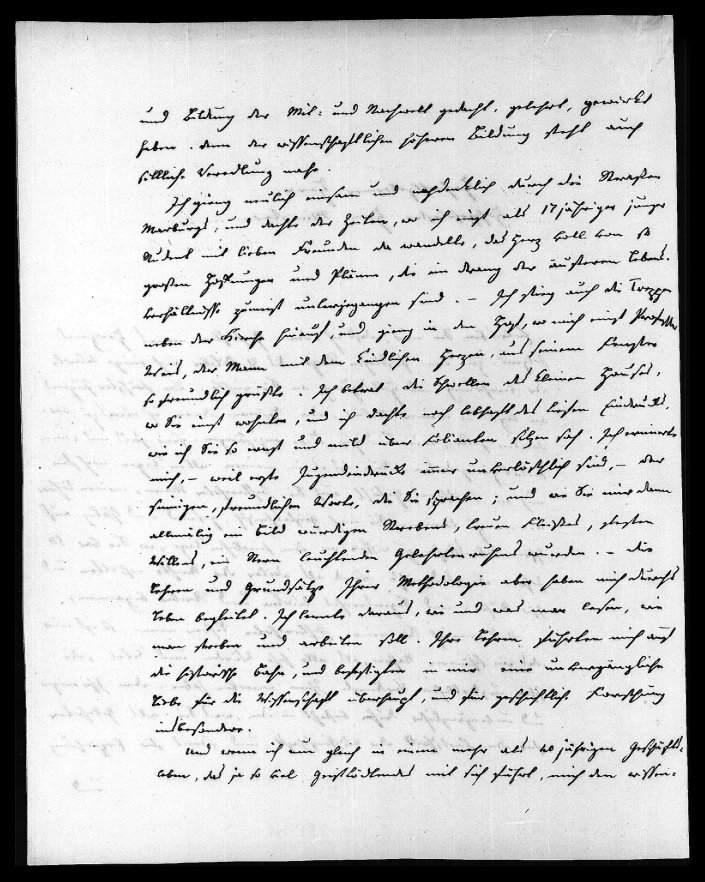 und Bildung der Mit- und Nachwelt gedacht, gelehrt, gewirkt
haben. denn der wissenschaftlichen höheren Bildung steht auch
sittliche Veredlung nahe.
Ich gieng neulich einsam und nachdenklich durch die Strassen
Marburgs, und dachte der Zeiten, wo ich einst als 17jähriger junger
Student mit lieben Freunden da wandelte, das Herz voll von so
großen Hoffnungen und Plänen, die im drang der äusseren Lebens-
verhältnisse zumeist untergegangen sind. – Ich stieg auch die Treppe
neben der Kirche hinauf, und gieng in den Hof, wo mich einst Professor
Weis, der Mann mit dem kindlichen Herzen, aus seinem Fenster
so freundlich grüßte. Ich betrat die Schwellen des kleinen Hauses,
wo Sie einst wohnten, und ich dachte noch lebhaft des tiefen Eindrucks,
wie ich Sie so ernst und mild über Folianten sitzen sah. Ich erinnerte
mich, – weil erste Jugendeindrücke immer unverlöschlich sind, – der
sinnigen, freundlichen Worte, die Sie sprachen; und wie Sie mir dann
allmälig ein Bild würdigen Strebens, treuen Fleißes, festen
Willens, ein Stern leuchtenden Gelehrtenruhms wurden. – die
Lehren und Grundsätze Ihrer Methodologie aber haben mich durchs
Leben begleitet. Ich lernte daraus, wie und was man lesen, wie
man streben und arbeiten soll. Ihre Lehren führten mich auf
die historische Bahn, und befestigten in mir eine unvergängliche
Liebe für die Wissenschaft überhaupt, und für geschichtliche Forschung
insbesondere.
Und wenn ich nun gleich in einem mehr als 40jährigen Geschäfts-
leben, das ja so viel Geisttödtendes mit sich führt, mich den wissen-